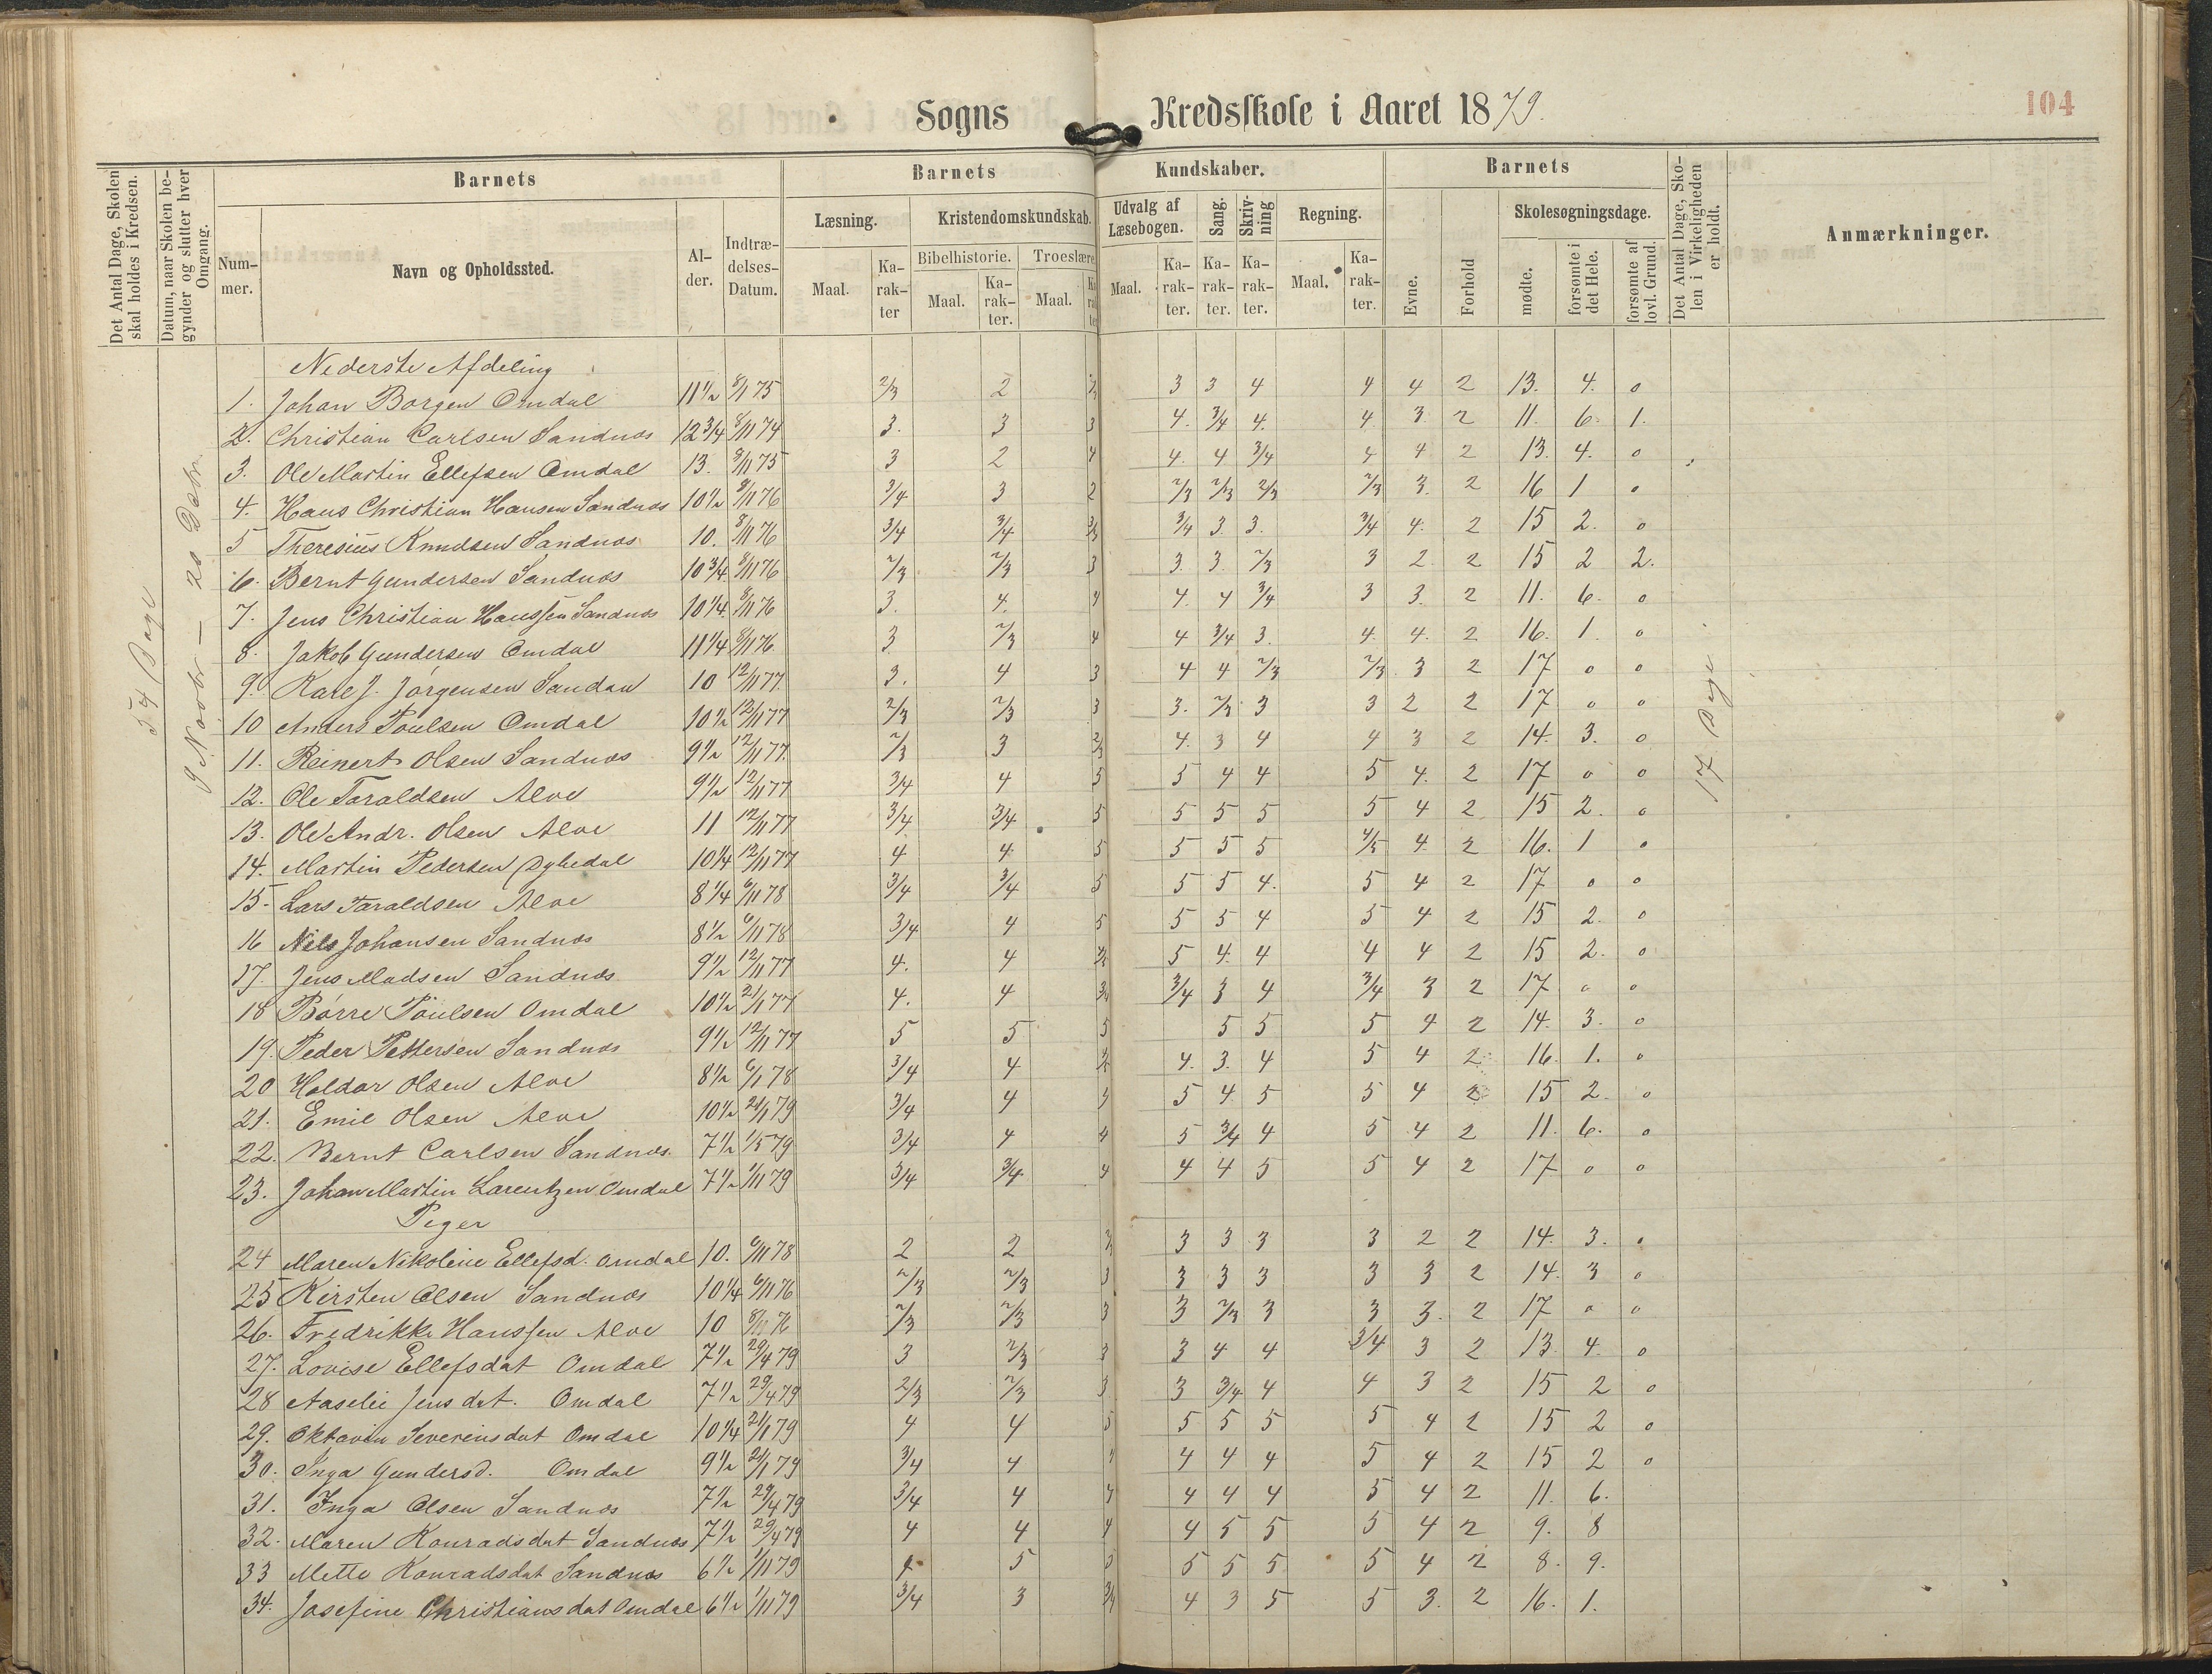 Sogns Kredsskole i Aaret 1879.
104
Det Antal Dage, Skolen skal holdes i Kredsen.
Datum, naar Skolen begynder og slutter hver Omgang.
Barnets
Nummer.
Navn og Opholdssted.
Alder.
Indtrædelses-Datum.
Barnets Kundskaber.
Læsning.
Maal.
Karakter
Kristendomskundskab.
Bibelhistorie.
Maal.
Karakter.
Troeslære
Maal.
Udvalg af Læsebogen.
Maal.
Karakter.
Sang.
Karakter.
Skrivning
Karakter.
Regning.
Maal.
Karakter.
Barnets
Evne.
Forhold
Skolesøgningsdage.
mødte.
forsømte i det Hele.
forsømte af lovl. Grund.
Det Antal Dage, Skolen i Virkeligheden er holdt.
Anmærkninger.
54 Dage
17 Dage
Nederste Afdeling
1. Johan Borgen Omdal 11½ 8/1 75 2/3 2 3 3 4 4 4 2 13. 4. 0
2. Christian Carlsen Sandnæs 12¾ 8/11 74 3. 3 3 4. 3/4 4. 4. 3 2 11. 6. 1.
3. Ole Martin Ellefsen Omdal 13. 8/11 75 3 2 4 4. 4 3/4 4 4 2 13. 4. 0
4. Hans Christian Hansen Sandnæs 10½ 8/11 76 3/4 3 2 2/3 2/3 2/3 2/3 3. 2 16 1 0
5 Theresius Knudsen Sandnæs 10. 8/11 76 3/4 3/4 3/4 3. 3. 3/4 4. 2 15 2. 0
6. Bernt Gundersen Sandnæs 10¾ 8/11 76 2/3 2/3 3 3. 3. 2/3 3 2 2 15 2 2.
7. Jens Christian Hanssen Sandnæs 10¼ 8/11 76 3. 4. 4 4. 4 3/4 3 3. 2 11. 6. 0
8. Jakob Gundersen Omdal 11¼ 8/11 76 3 2/3 4 4 3/4 3. 4. 4. 2 16. 1. 0
9. Karl J. Jörgensen Sandnæs 10 12/11 77. 3. 4 3 4 4 2/3 2/3. 3 2 17 0 0
10 Anders Poulsen Omdal 10½ 12/11 77 2/3 2/3 3 3. 2/3 3 3 2 2 17 0 0
11. Reinert Olsen Sandnæs 9½ 12/11 77. 2/3 3 4. 3 4 4 3 2 14. 3. 0
12. Ole Taraldsen Alve 9½ 12/11 77 3/4 4 5 5 4 4 5 4. 2 17 0 0
13. Ole Andr. Olsen Alve 11 12/11 77 3/4 3/4 5 5 5 5 5 4 2 15 2. 0
14. Martin Pedersen Dybedal 10¼ 12/11 77 4 4 5 5 5 5 4/5 4 2 16. 1 0
15. Lars Taraldsen Alve 8¼ 6/11 78 3/4 3/4 5 5 5 4. 5 4 2 17 0 0
16 Nils Johansen Sandnæs 8½ 6/11 78 3/4 4 5 5 5 4 5 4 2 15 2. 0
17. Jens Madsen Sandnæs 9½ 12/11 77 4. 4 5 4. 4 4 4 2 15 2. 0
18 Börre Poulsen Omdal 10½ 21/1 77 4. 4 3/4 3 4 3/4 3 2 17 0 0
19. Peder Pettersen Sandnæs 9½ 12/11 77 5 5 5 5 5 5 4 2 14. 3. 0
20 Haldor Olsen Alve 8½ 6/1 78 3/4 4 4. 3. 4 5 4 2 16. 1. 0
21. Emil Olsen Alve 10½ 21/1 79 3/4 4 5 4 5 5 4 2 15 2. 0
22. Bernt Carlsen Sandnæs. 7½ 1/5 79 3/4 4 4 5 3/4 4 5 4 2 11. 6. 0
23. Johan Martin Larentzen Omdal 7½ 1/11 79 3/4 3/4 4 4 4 5 5 4 2 17 0 0
Piger
24 Maren Nikoline Ellefsd. Omdal 10. 6/11 78 2 2 3 3 3 3 2 2 14. 3. 0
25 Kirsten Olsen Sandnæs 10¼ 6/11 76 2/3 2/3 3 3 3 3 3 3 2 14. 3 0
26. Fredrikke Hanssen Alve 10 8/11 76 2/3 2/3 3 3 2/3 3 3 3. 2 17 0 0
27. Lovise Ellefsdat Omdal 7½ 29/4 79 3 2/3 3 3 4 4 3/4 3 2 13. 4. 0
28 Aaselie Jensdat. Omdal 7½ 29/4 79 2/3 2/3 3 3 3/4 4 4 3 2 15 2 0
29. Oktavia Severinsdat Omdal 10¼ 21/1 79 4 4 5 5 5 5 5 4 2 15 2 0
30. Inga Gundersd. Omdal 9½ 21/1 79 3/4 4 4 4 4 5 4 2 15 2 0
31. Inga Olsen Sandnæs 7½ 29/4 79 3/4 4 4 4 4 4 5 4 2 11. 6.
32. Maren Konradsdat Sandnæs 7½ 29/4 79 4 4 4 4 5 5 5 4 2 9. 8
33 Mette Konradsdat Sandnæs 6½ 1/11 79 4 5 5 5 5 5 4 2 8. 9.
34. Josefine Christiansdat Omdal 6½ 1/11 79 3/4 3 3/4 4 3 5 5 3. 2 16. 1.